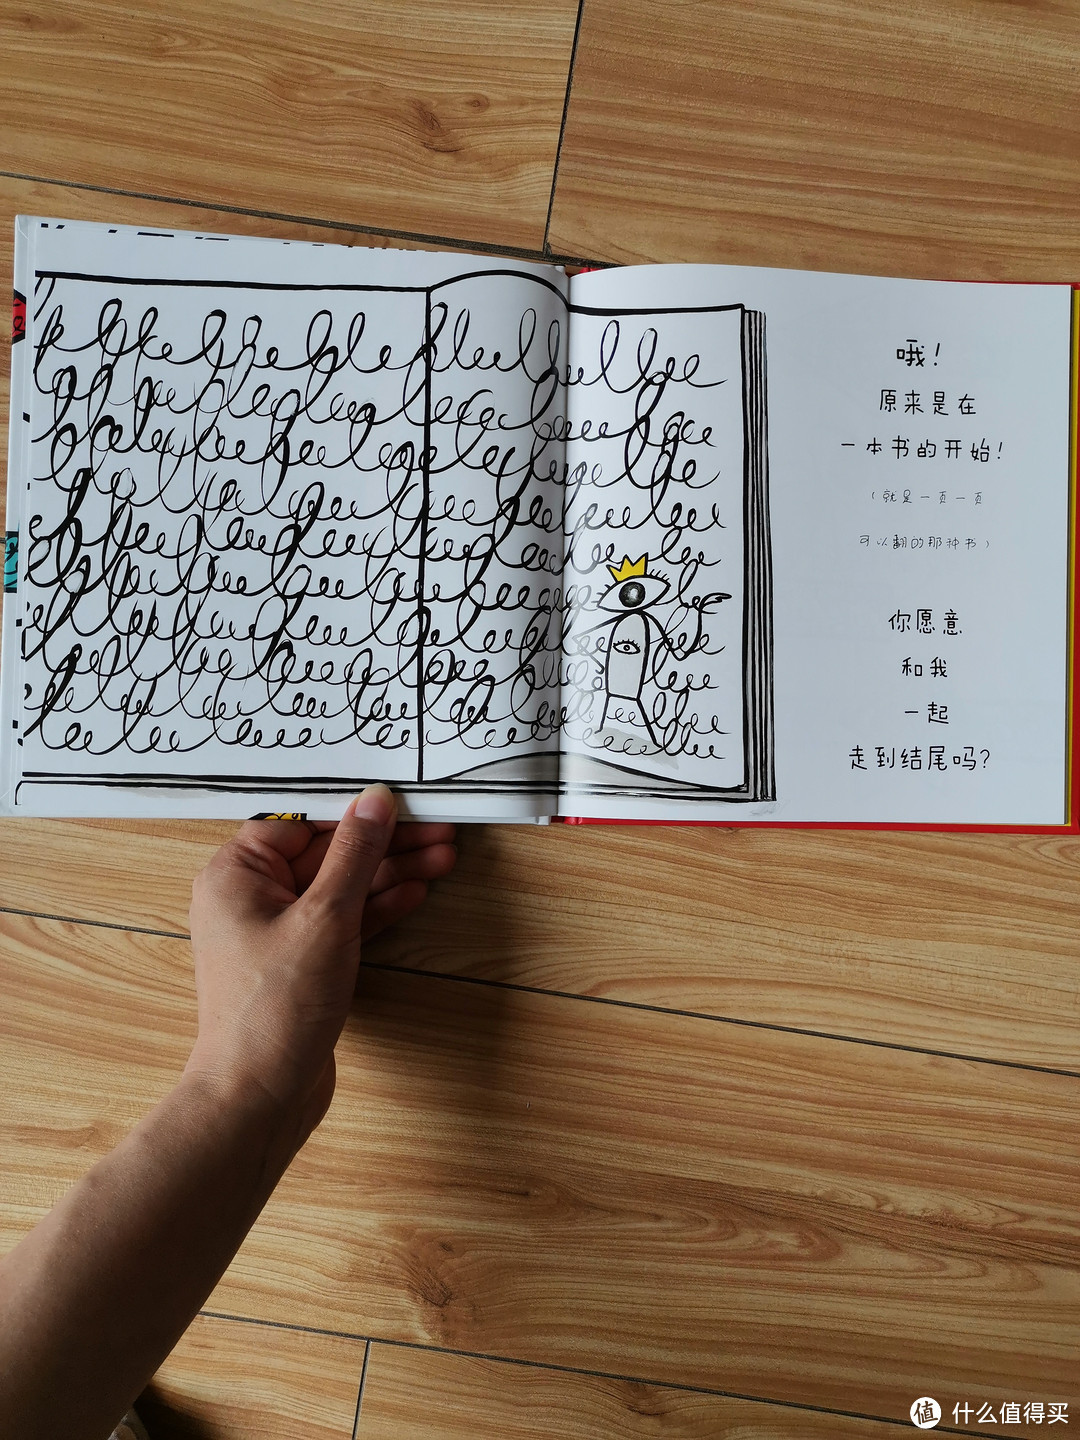 哦！
原来是在
一本书的开始！
（就是一页一页
可以翻的那种书）
你愿意
和我
一起
走到结尾吗？
值 什么值得买